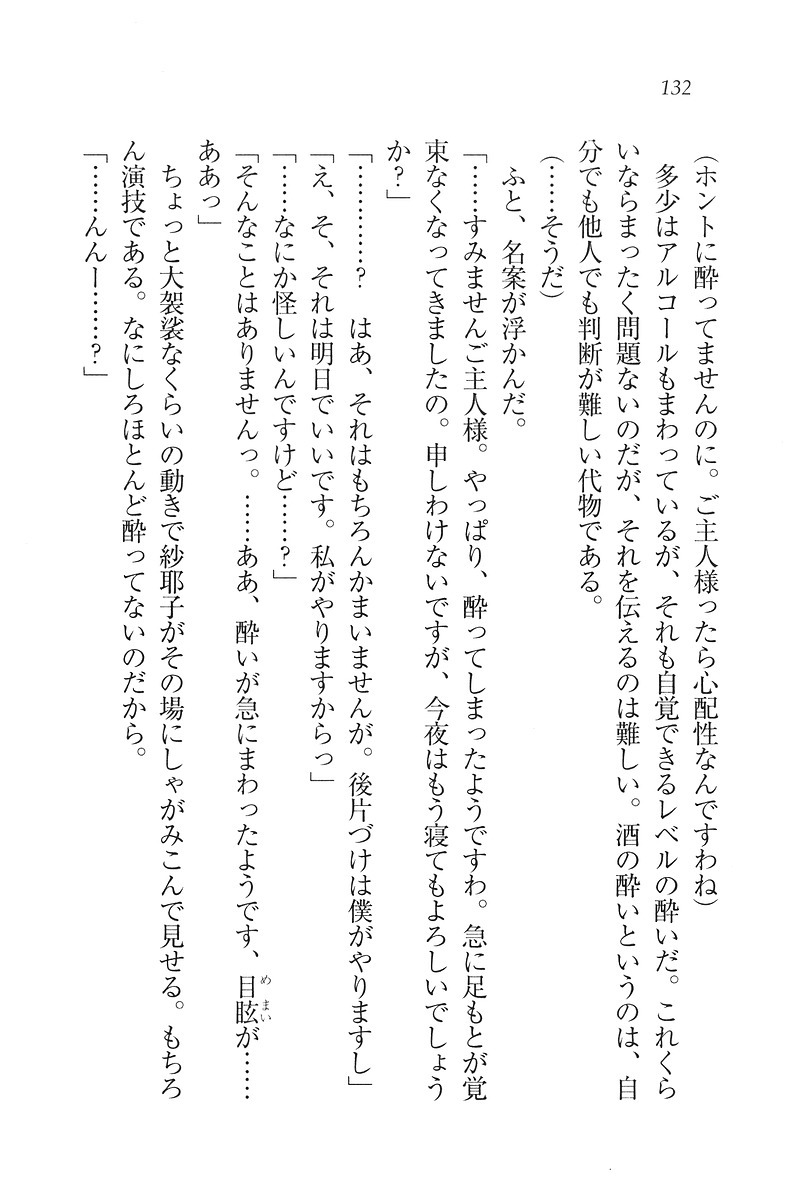 132
(ホントに酔ってませんのに。ご主人様ったら心配性なんですわね)
　多少はアルコールもまわっているが、それも自覚できるレベルの酔いだ。これくら
いならまったく問題ないのだが、それを伝えるのは難しい。酒の酔いというのは、自
分でも他人でも判断が難しい代物である。
(……そうだ)
　ふと、名案が浮かんだ。
「……すみませんご主人様。やっぱり、酔ってしまったようですわ。急に足もとが覚
束なくなってきましたの。申しわけないですが、今夜はもう寝てもよろしいでしょう
か?」
「…………?　はあ、それはもちろんかまいませんが。後片づけは僕がやりますし」
「え、そ、それは明日でいいです。私がやりますからっ」
「……なにか怪しいんですけど……?」
「そんなことはありませんっ。……ああ、酔いが急にまわったようです、目眩が……
めまい
ああっ」
　ちょっと大袈裟なくらいの動きで紗耶子がその場にしゃがみこんで見せる。もちろ
ん演技である。なにしろほとんど酔ってないのだから。
「……んんー……?」